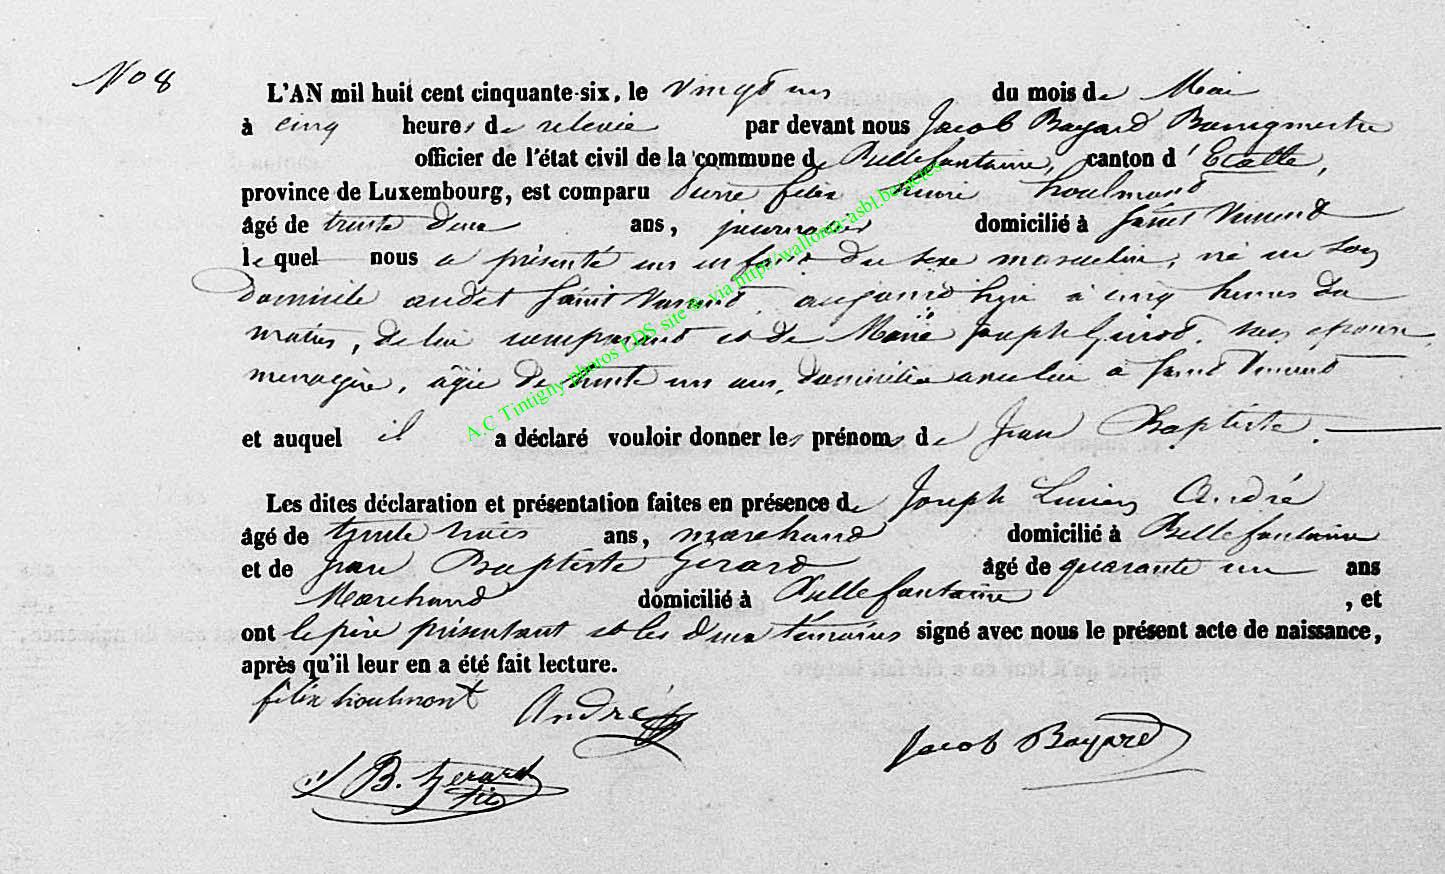 No 8
L'AN mil huit cent cinquante-six, le vingt un du mois de Mai
à cinq heures de relevée par devant nous Jacob Bayard Bourgmestre
officier de l'état civil de la commune de Bellefontaine, canton d'Etalle,
province de Luxembourg, est comparu Pierre felix henri houlmont
âgé de trente deux ans, journalier domicilié à Saint Vincent
le quel nous a présenté un enfant du sexe masculin, né en son
domicile audit Saint Vincent, aujourd'hui à cinq heures du
matin, de lui comparant et de Marie Joseph Girod, son épouse,
menagère, âgée de trente un ans, domiciliée avec lui à Saint Vincent
et auquel il a déclaré vouloir donner les prénoms de Jean Baptiste.
Les dites déclaration et présentation faites en présence de Joseph Lucien André
âgé de trente trois ans, marchand domicilié à Bellefontaine
et de Jean Baptiste Gérard âgé de quarante un ans
Marchand domicilié à Bellefontaine, et
ont le père présentant et les deux témoins signé avec nous le présent acte de naissance,
après qu'il leur en a été fait lecture.
félix houlmont André
Jacob Bayard
J B. Gerard
A.C Tintigny photos LDS site & via http://wallonia-asbl.be/actes